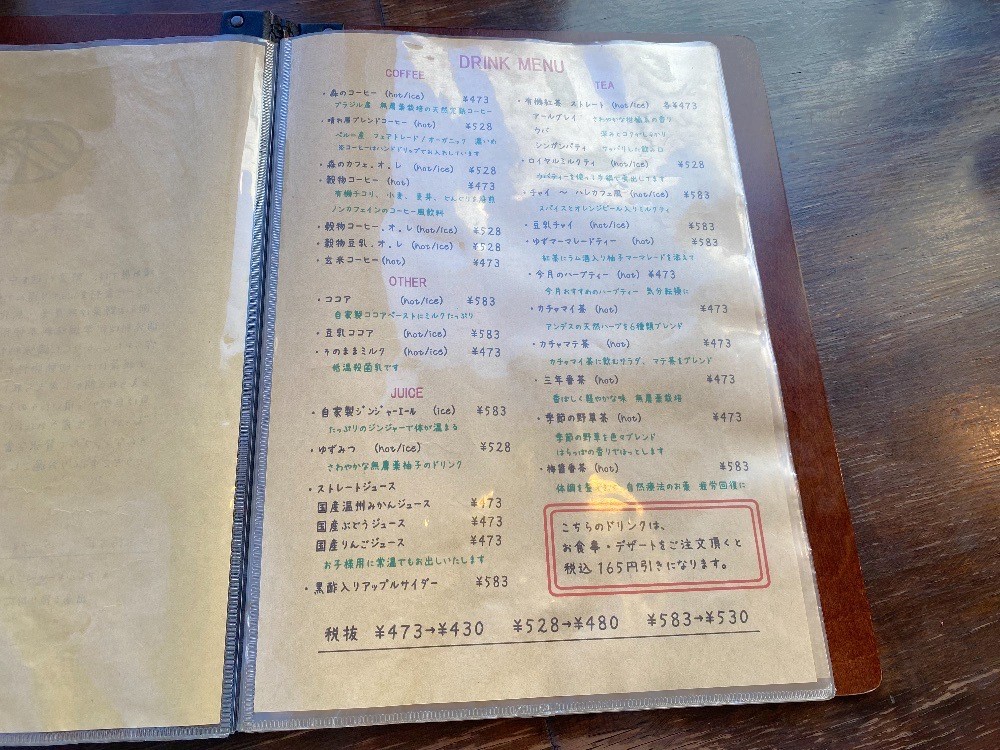 DRINK MENU
COFFEE
・森のコーヒー (hot/ice) ¥473
ブラジル産 無農薬栽培の天然完熟コーヒー
・晴れ屋ブレンドコーヒー (hot) ¥528
ペルー産 フェアトレード/オーガニック 濃いめ
※コーヒーはハンドドリップでお入れしています
・森のカフェ.オ.レ (hot/ice) ¥528
・穀物コーヒー (hot) ¥473
有機チコリ、小麦、
ノンカフェインのコーヒー風飲料
・穀物コーヒー.オ.レ (hot/ice) ¥528
・穀物豆乳.オ.レ (hot/ice) ¥528
・玄米コーヒー(hot) ¥473
OTHER
・ココア (hot/ice) ¥583
自家製ココアペーストにミルクたっぷり
・豆乳ココア (hot/ice) ¥583
・そのままミルク (hot/ice) ¥473
低温殺菌乳です
JUICE
・自家製ジンジャーエール (ice) ¥583
たっぷりのジンジャーで体が温まる
・ゆずみつ (hot/ice) ¥528
さわやかな無農薬柚子のドリンク
・ストレートジュース
国産温州みかんジュース ¥473
国産ぶどうジュース ¥473
国産りんごジュース ¥473
お子様用に常温でもお出しいたします
・黒酢入りアップルサイダー ¥583
TEA
・有機紅茶 ストレート (hot/ice) 各¥473
アールグレイ さわやかな柑橘系の香り
ウバ 深みとコクがしっかり
シンガンパティ サッパリした飲み口
・ロイヤルミルクティ (hot/ice) ¥528
ウバティーを使って手鍋で煮出してます
・チャイ 〜 ハレカフェ風 (hot/ice) ¥583
スパイスとオレンジピール入りミルクティ
・豆乳チャイ (hot/ice) ¥583
・ゆずマーマレードティー (hot) ¥583
紅茶にラム酒入り柚子マーマレードを添えて
・今月のハーブティー (hot) ¥473
今月おすすめのハーブティー 気分転換に
・カチャマイ茶 (hot) ¥473
アンデスの天然ハーブを6種類ブレンド
・カチャマテ茶 (hot) ¥473
カチャマイ茶に飲むサラダ、マテ茶をブレンド
・三年番茶 (hot) ¥473
香ばしく軽やかな味 無農薬栽培
・季節の野草茶 (hot) ¥473
季節の野草を色々ブレンド
はらっぱの香りでほっとします
・梅醤番茶 (hot) ¥583
体調を 自然療法のお薬 疲労回復に
こちらのドリンクは、
お食事・デザートをご注文頂くと
税込 165円引きになります。
税抜 ¥473→¥430 ¥528→¥480 ¥583→¥530